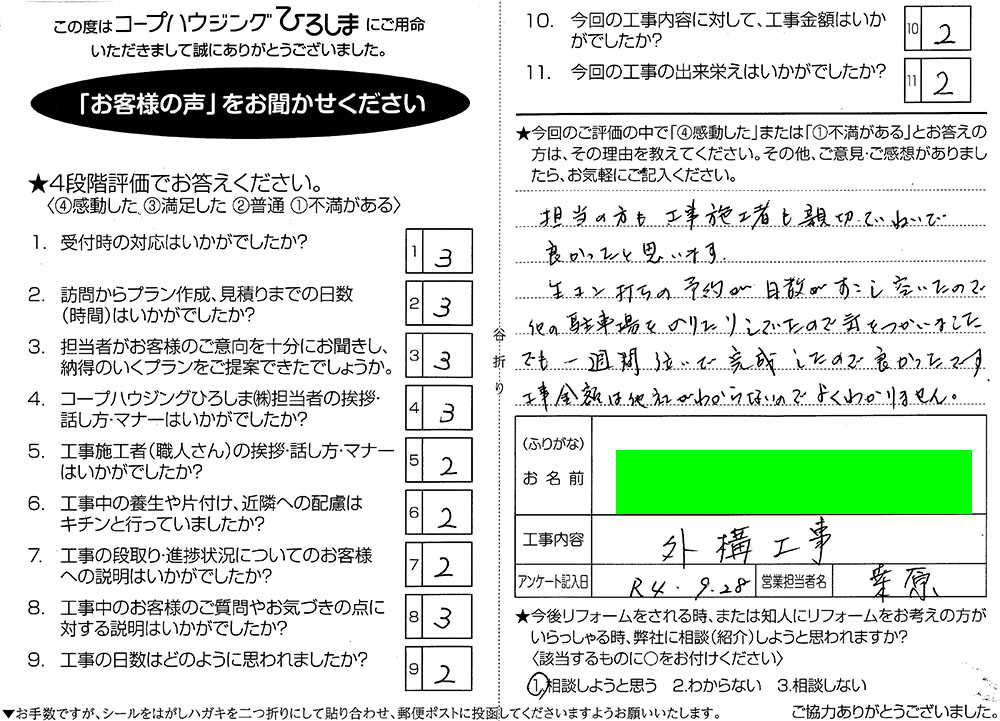 この度はコープハウジングひろしまにご用命
いただきまして誠にありがとうございました。
「お客様の声」をお聞かせください
★4段階評価でお答えください。
〈④感動した ③満足した ②普通 ①不満がある〉
1. 受付時の対応はいかがでしたか?
1 3
2. 訪問からプラン作成、見積りまでの日数
(時間)はいかがでしたか?
2 3
3. 担当者がお客様のご意向を十分にお聞きし、
納得のいくプランをご提案できたでしょうか。
3 3
4. コープハウジングひろしま㈱担当者の挨拶・
話し方・マナーはいかがでしたか?
4 3
5. 工事施工者(職人さん)の挨拶・話し方・マナー
はいかがでしたか?
5 2
6. 工事中の養生や片付け、近隣への配慮は
キチンと行っていましたか?
6 2
7. 工事の段取り・進捗状況についてのお客様
への説明はいかがでしたか?
7 2
8. 工事中のお客様のご質問やお気づきの点に
対する説明はいかがでしたか?
8 3
9. 工事の日数はどのように思われましたか?
9 2
谷折り
10. 今回の工事内容に対して、工事金額はいか
がでしたか?
10 2
11. 今回の工事の出来栄えはいかがでしたか?
11 2
★今回のご評価の中で「④感動した」または「①不満がある」とお答えの
方は、その理由を教えてください。その他、ご意見・ご感想がありまし
たら、お気軽にご記入ください。
担当の方も工事施工者も親切でねいで
良かったと思います。
生コン打ちの予約が日数がすこし空いたので
他の駐車場をかりたりしていたので気をつかいました
でも一週間位いで完成したので良かったです
工事金額は他社がわからないのでよくわかりません。
(ふりがな)
お名前
工事内容 外構工事
アンケート記入日 R4.9.28 営業担当者名 栗原
★今後リフォームをされる時、または知人にリフォームをお考えの方が
いらっしゃる時、弊社に相談(紹介)しようと思われますか?
〈該当するものに○をお付けください〉
1.相談しようと思う 2.わからない 3.相談しない
▼お手数ですが、シールをはがしハガキを二つ折りにして貼り合わせ、郵便ポストに投函してくださいますようお願いいたします。
ご協力ありがとうございました。